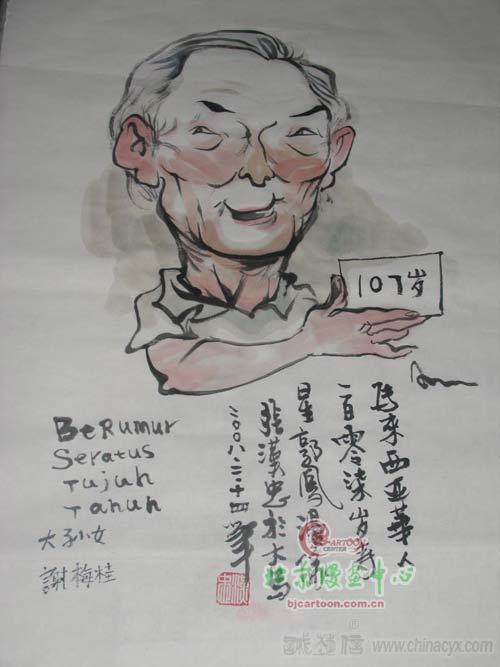 107岁
馬来西亚華人
一百零柒岁寿
星郭鳳
張漢忠於大馬
二〇〇八.二.十四
BeRumur
Seratus
Tujuh
Tahun
大孙女
謝梅桂
CARTOON
CENTER
北京漫画中心
bjcartoon.com.cn
www.chinacyx.com